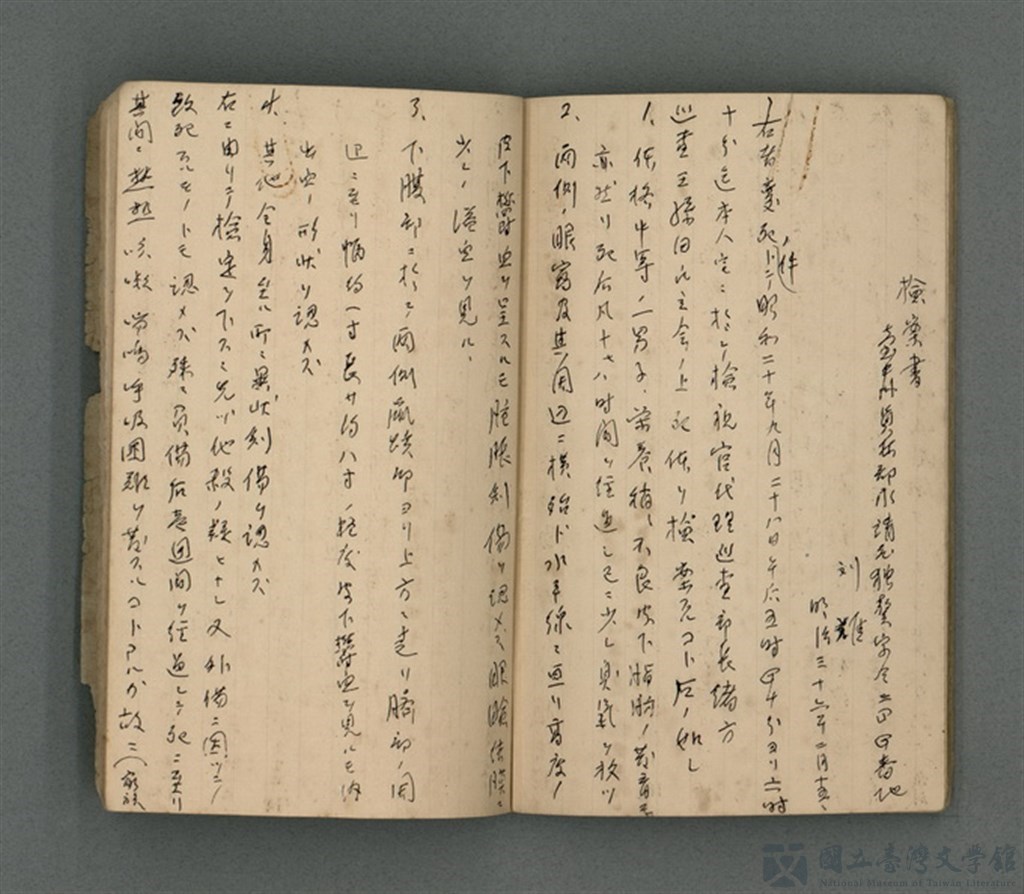 檢案書
臺南州員林郡永靖庄獨鰲字今二四四番地
劉雄
明治三十六年二月十五
右者変死ノ件ニ昭和二十年九月二十八日午后五時四十分ヨリ六時
十分迄本人宅ニ於テ檢視官代理巡査部長緒方
巡査立会ノ上死体ヲ檢案スルコト左ノ如シ
1、体格中等ノ一男子、栄養稍々不良皮下脂肪ノ発育モ
亦然リ死后凡十七八時間ヲ経過シ已ニ少シ臭氣ヲ放ツ
2、両側ノ眼窩及其ノ周辺ニ横殆ド水平線ニ亘リ高度ノ
皮下欝血ヲ呈スルモ腫脹創傷ヲ認メズ眼瞼結膜ニ
少シノ溢血ヲ見ル、
3、下腹部ニ於テ両側鼠蹊部ヨリ上方ニ走リ臍部ノ周
辺ニ至リ幅約一寸長サ約八寸ノ軽度皮下欝血ヲ見ルモ内
出血ノ形状ヲ認メズ
4、其他全身至ル所ニ異状創傷ヲ認メズ
右ニ由リテ檢定ヲ下スニ先ツ他殺ノ疑ヒナシ又外傷ニ因ツテノ
致死スルモノトモ認メズ殊ニ負傷后壱週間ヲ経過シテ死ニ至リ
其間ニ發熱咳嗽喘鳴呼吸困難ヲ発スルコトアルガ故ニ（家族
國立臺灣文學館
National Museum of Taiwan Literature